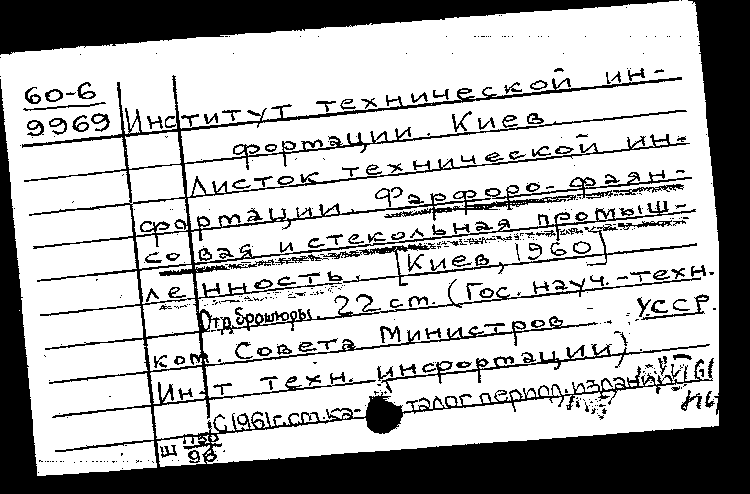 60-6
9969 Институт технической ин-
формации. Киев.
Листок технической ин-
формации. Фарфоро-фаян-
совая и стекольная промыш-
ленность. [Киев, 1960]
Отд. брошюры. 22 см. (Гос. науч.-техн.
ком. Совета Министров УССР.
Ин-т техн. информации)
С 1961 г. см. ка- талог период. изданий
Ш 96